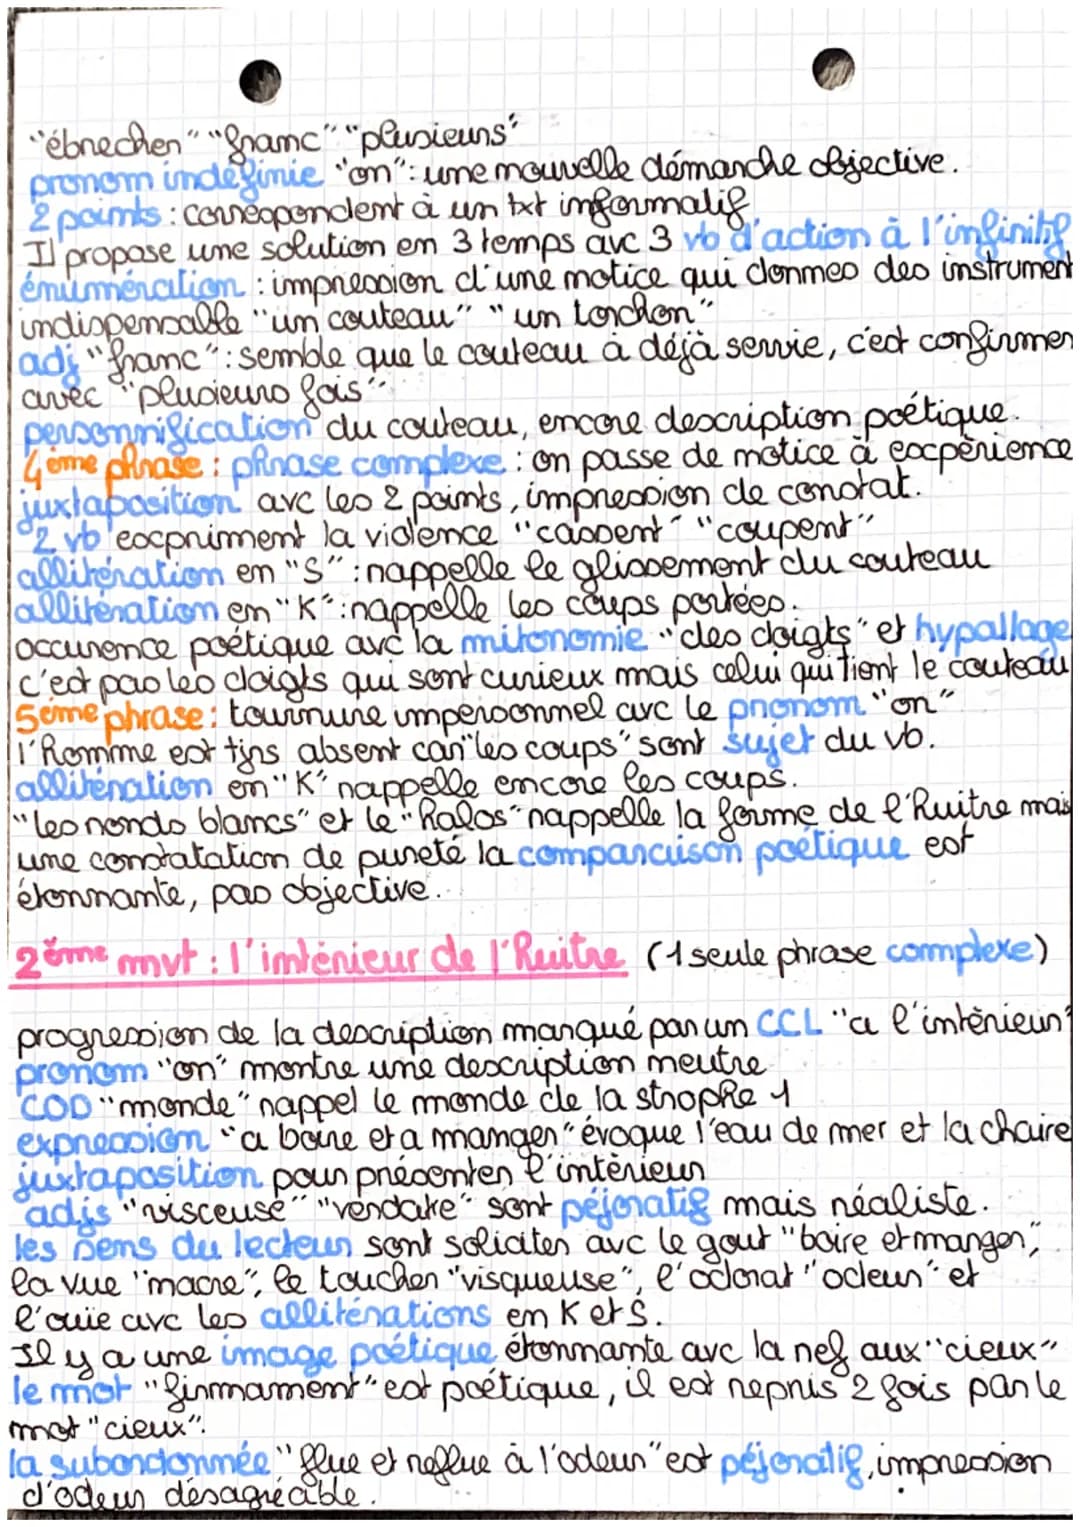 "ébrecher" "franc" "plusieurs"
pronom indéfinie "on": une nouvelle démarche objective.
2 points : correspondent à un txt informatif
Il propose une solution en 3 temps avc 3 vb d'action à l'infinitif
énumération : impression d'une notice qui donnes des instrument
indispensable "un couteau" "un torchon"
adj "franc": semble que le couteau à déjà servie, c'est confirmer
avec "plusieurs fois".
personnification du couteau, encore description poétique.
4ème phrase : phrase complexe : on passe de notice à expèrience
juxtaposition avc les 2 points, impression de constat.
2 vb expriment la violence "cassent" "coupent"
allitération en "S" : rappelle le glissement du couteau
allitération en "K": rappelle les coups portées.
occurence poétique avc la mitonomie "des doigts" et hypallage
c'est pas les doigts qui sont curieux mais celui qui tient le couteau
5ème phrase : tournure impersonnel avc le pronom "on"
l'homme est tjrs absent car "les coups" sont sujet du vb.
allitération en "K" rappelle encore les coups.
"les ronds blancs" et le "halos" rappelle la forme de l'huitre mais
une constatation de pureté la comparaison poétique est
étonnante, pas objective.
2ème mvt : l'intérieur de l'huitre (1 seule phrase complexe)
progression de la description marqué par un CCL "a l'intèrieur"
pronom "on" montre une description neutre
COD "monde" rappel le monde de la strophe 1
expression "a boire et a manger" évoque l'eau de mer et la chaire
juxtaposition pour présenter l'intèrieur
adjs "visceuse" "verdatre" sont péjoratif mais réaliste.
les sens du lecteur sont soliciter avc le gout "boire et manger",
la vue "nacre", le toucher "visqueuse", l'odorat "odeur" et
l'ouïe avc les allitérations en K et S.
Il y a une image poétique étonnante avc la nef aux "cieux"
le mot "firmament" est poétique, il est repris 2 fois par le
mot "cieux".
la subordonnée "flue et reflue à l'odeur" est péjoratif, impression
d'odeur désagréable.